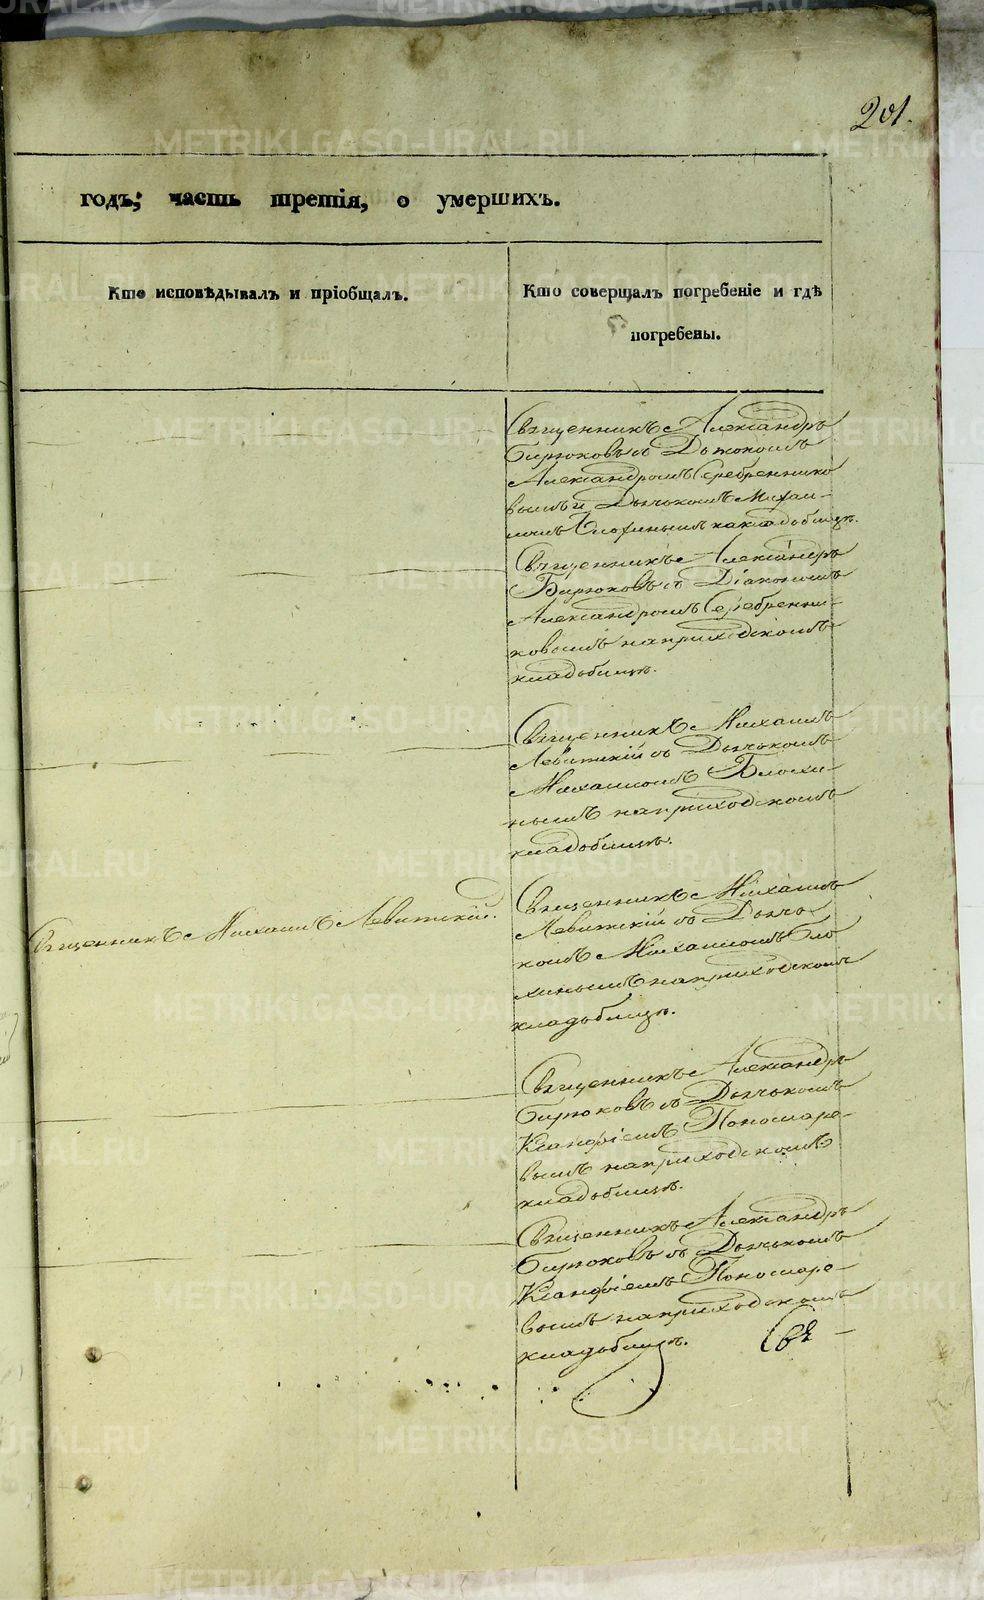 201.
годъ; часть третія, о умершихъ.
Кто исповѣдывалъ и пріобщалъ.
Кто совершалъ погребеніе и гдѣ
погребены.
Священникъ Александръ
Бирюковъ съ Дьякономъ
Александромъ Серебреннико
вымъ и Дьячкомъ Михаи-
ломъ Блохинымъ на кладбищѣ.
Священникъ Александръ
Бирюковъ съ Діакономъ
Александромъ Серебренни-
ковымъ на приходскомъ
кладбищѣ.
Священникъ Михаилъ
Левитскій съ Дьячкомъ
Михаиломъ Блохи-
нымъ на приходскомъ
кладбищѣ.
Священникъ Михаилъ Левитскій.
Священникъ Михаилъ
Левитскій съ Дьяч-
комъ Михаиломъ Бло
хинымъ на приходскомъ
кладбищѣ.
Священникъ Александръ
Бирюковъ съ Дьячкомъ
Ксанфіемъ Пономаре-
вымъ на приходскомъ
кладбищѣ.
Священникъ Александръ
Бирюковъ съ Дьячкомъ
Ксанфіемъ Пономаре-
вымъ на приходскомъ
кладбищѣ.
METRIKI.GASO-URAL.RU